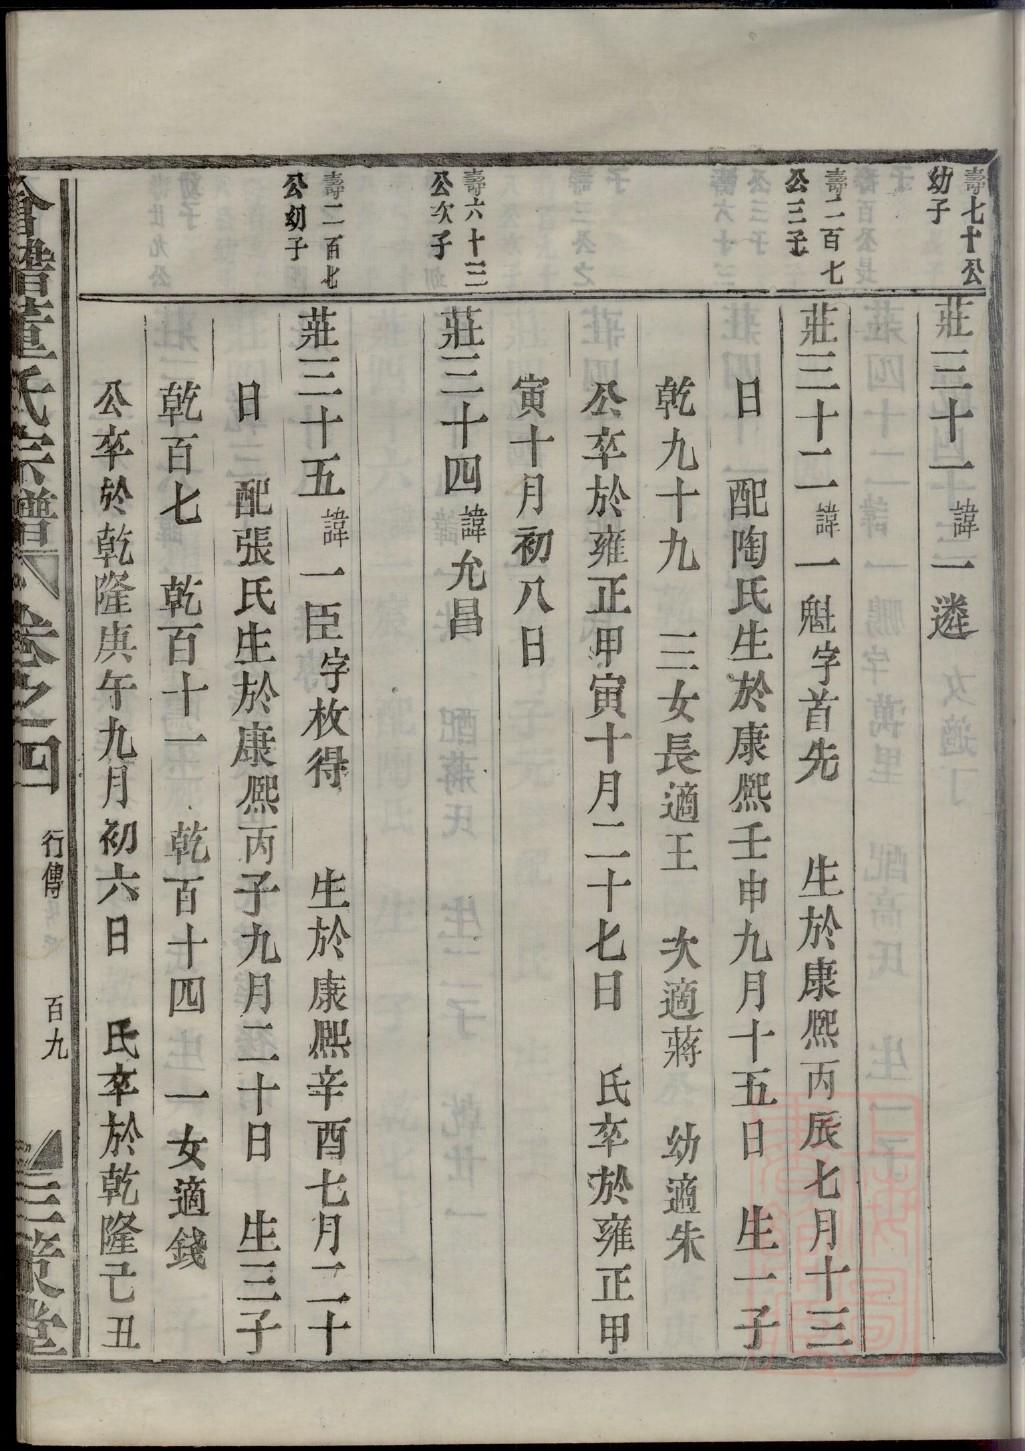 壽七十公
幼子
莊三十一諱一遴
壽二百七
公三子
莊三十二諱一魁字首先 生於康熙丙辰七月十三
日 配陶氏生於康熙壬申九月十五日 生一子
乾九十九 三女長適王 次適蔣 幼適朱
公卒於雍正甲寅十月二十七日 氏卒於雍正甲
寅十月初八日
壽六十三
公次子
莊三十四諱允昌
壽二百七
公幼子
莊三十五諱一臣字枚得 生於康熙辛酉七月二十
日 配張氏生於康熙丙子九月二十日 生三子
乾百七 乾百十一 乾百十四 一女適錢
公卒於乾隆庚午九月初六日 氏卒於乾隆己丑
會稽董氏宗譜 卷之四 行傳 百九 三策堂